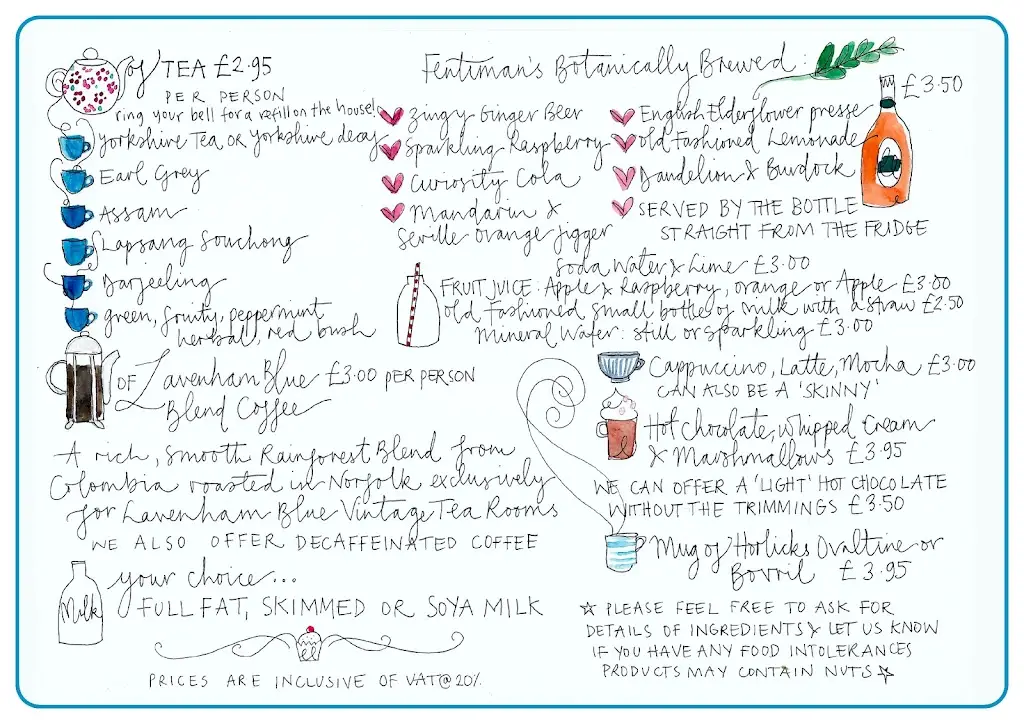 of TEA £2.95
PER PERSON
ring your bell for a refill on the house!
Yorkshire Tea or Yorkshire decaf
Earl Grey
Assam
Lapsang Souchong
Darjeeling
green, fruity, peppermint
herbal, red bush
OF Lavenham Blue £3.00 PER PERSON
Blend Coffee
A rich, smooth Rainforest Blend from
Colombia roasted in Norfolk exclusively
for Lavenham Blue Vintage Tea Rooms
WE ALSO OFFER DECAFFEINATED COFFEE
Milk
your choice...
FULL FAT, SKIMMED OR SOYA MILK
PRICES ARE INCLUSIVE OF VAT@20%
Fentiman's Botanically Brewed:
£3.50
Zingy Ginger Beer
Sparkling Raspberry
Curiosity Cola
Mandarin &
Seville orange Jigger
English Elderflower presse
Old Fashioned Lemonade
Dandelion & Burdock
SERVED BY THE BOTTLE
STRAIGHT FROM THE FRIDGE
Soda Water & Lime £3.00
FRUIT JUICE: Apple & Raspberry, orange or Apple £3.00
Old Fashioned small bottle of milk with a straw £2.50
Mineral Water: still or sparkling £3.00
Cappuccino, Latte, Mocha £3.00
CAN ALSO BE A 'SKINNY'
Hot chocolate, whipped cream
& Marshmallows £3.95
WE CAN OFFER A 'LIGHT' HOT CHOCOLATE
WITHOUT THE TRIMMINGS £3.50
Mug of Horlicks Ovaltine or
Bovril £3.95
☆ PLEASE FEEL FREE TO ASK FOR
DETAILS OF INGREDIENTS & LET US KNOW
IF YOU HAVE ANY FOOD INTOLERANCES
PRODUCTS MAY CONTAIN NUTS ☆